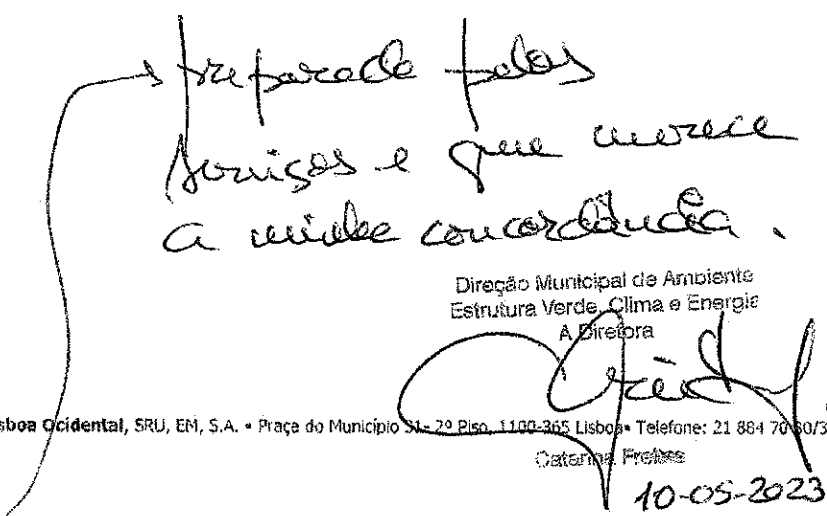 preparada pelos
serviços e que merece
a minha concordância.
Direção Municipal de Ambiente
Estrutura Verde, Clima e Energia
A Diretora
sboa Ocidental, SRU, EM, S.A. • Praça do Município 31- 2º Piso, 1100-365 Lisboa• Telefone: 21 884 70 80/3
Catarina Freitas
10-05-2023